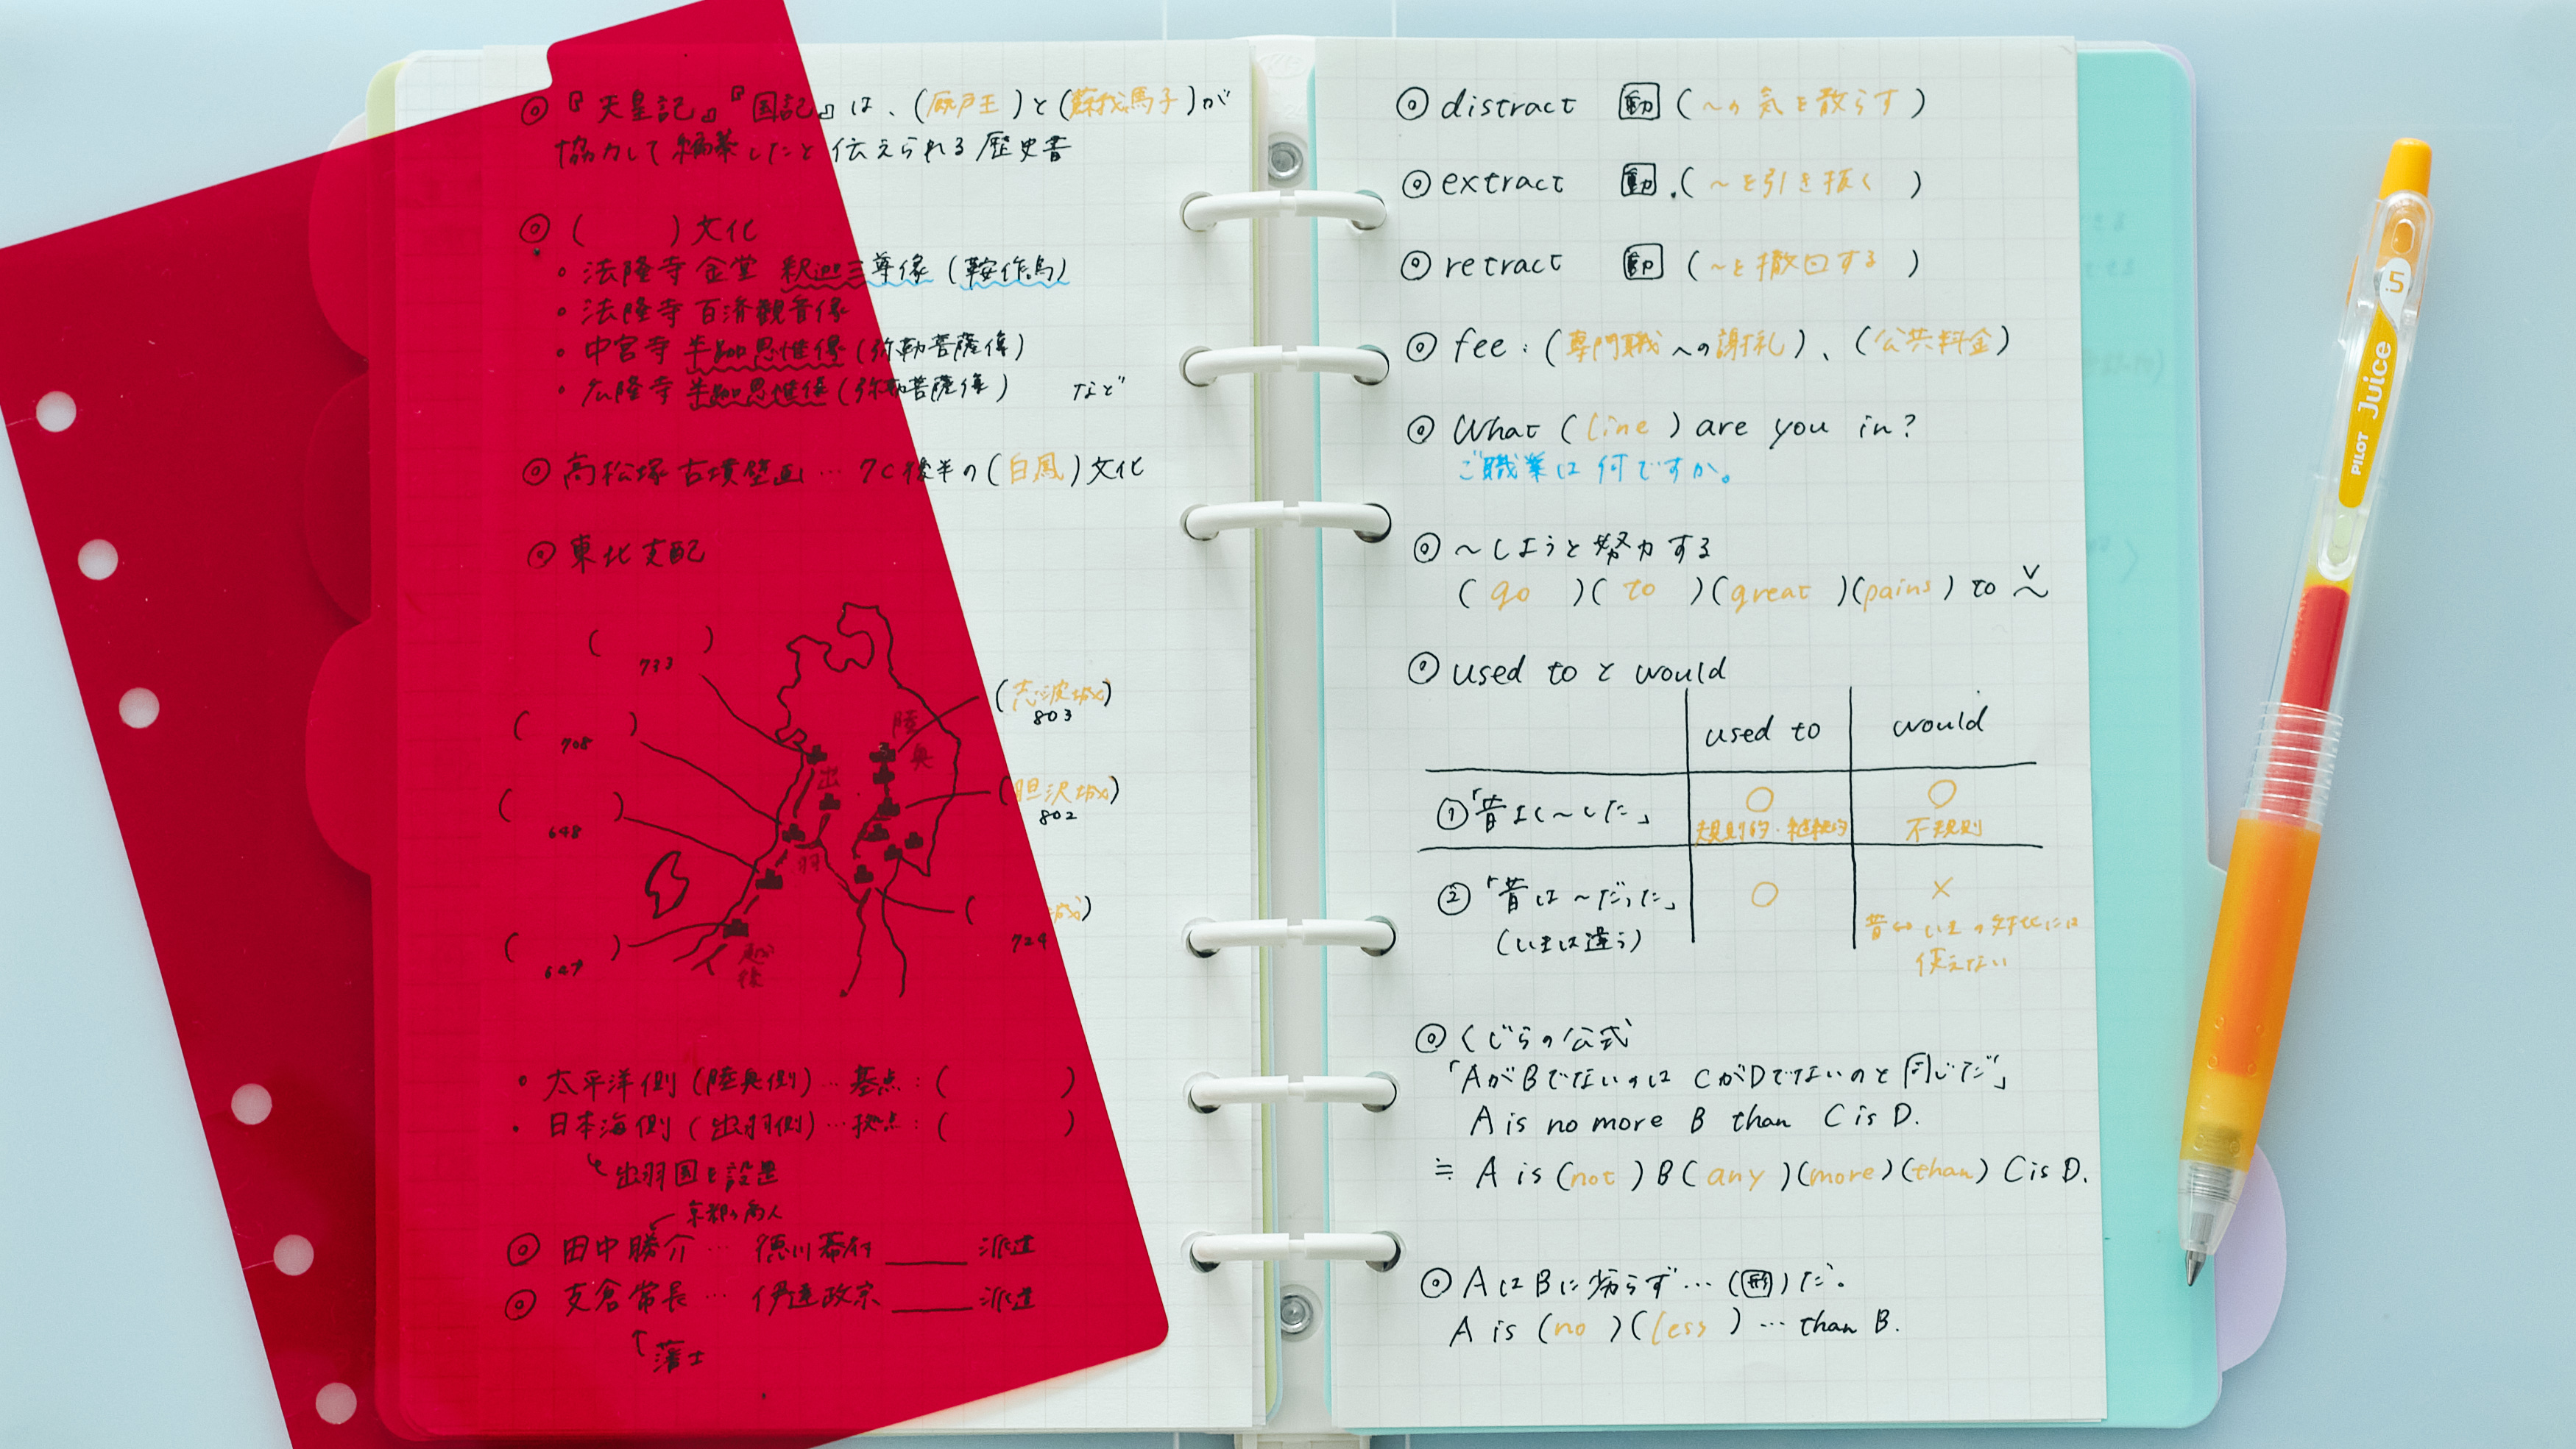 ◎『天皇記』『国記』は、(厩戸王)と(蘇我馬子)が
協力して編纂したと伝えられる歴史書
◎(　　)文化
・法隆寺金堂 釈迦三尊像(鞍作鳥)
・法隆寺百済観音像
・中宮寺 半跏思惟像(弥勒菩薩像)
・広隆寺 半跏思惟像(弥勒菩薩像) など
◎高松塚古墳壁画…7C後半の(白鳳)文化
◎東北支配
(　　)
733
(　　)
708
(　　)
648
(　　)
647
陸奥
出羽
越後
(志波城)
803
(胆沢城)
802
(　城)
724
・太平洋側(陸奥側)…基点:(　　)
・日本海側(出羽側)…拠点:(　　)
出羽国を設置
京都の商人
◎田中勝介… 徳川幕府 ＿＿ 派遣
◎支倉常長… 伊達政宗 ＿＿ 派遣
↑藩士
◎distract 動(~の気を散らす)
◎extract 動.(~を引き抜く)
◎retract 動(~を撤回する)
◎fee:(専門職への謝礼)、(公共料金)
◎What (line) are you in?
ご職業は何ですか。
◎~しようと努力する
(go)(to)(great)(pains) to V~
◎used to と would
used to would
①「昔よく~した」 ○ ○
規則的・継続的 不規則
②「昔は~だった」 ○ ×
(いまは違う) 昔⇔いまの対比には
使えない
◎くじらの公式
「AがBでないのはCがDでないのと同じだ」
A is no more B than C is D.
≒ A is (not) B (any)(more)(than) C is D.
◎AはBに劣らず…(形)だ。
A is (no)(less) … than B.
PILOT Juice
.5